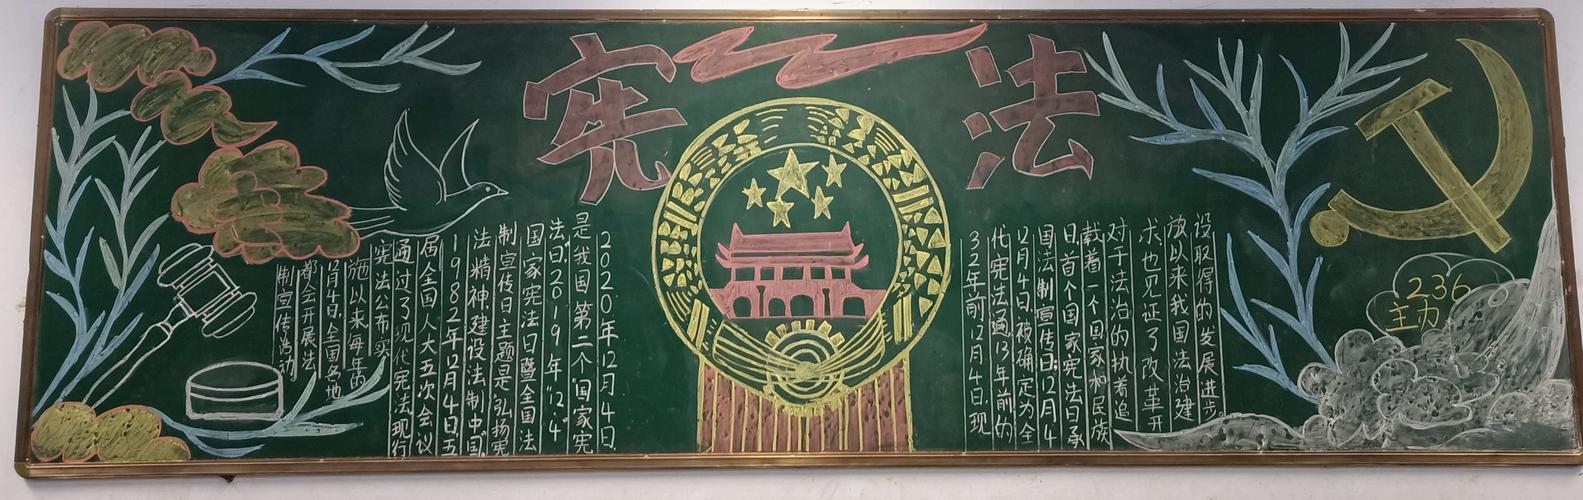 宪法
2020年12月4日,
是我国第二个"国家宪
法日"。2019年"12·4"
国家宪法日暨全国法
制宣传日主题是"弘扬宪
法精神,建设法制中国"
1982年12月4日五
届全国人大五次会议
通过了现代宪法,现行
宪法公布实
施以来,每年的
12月4日,全国各地
都会开展法
制宣传活动
32年前12月4日,现
代宪法通13年前的
12月4日,被确定为全
国法制宣传日;12月4
日,首个国家宪法日承
载着一个国家和民族
对于法治的执着追
求,也见证了改革开
放以来我国法治建
设取得的发展进步。
236
主办